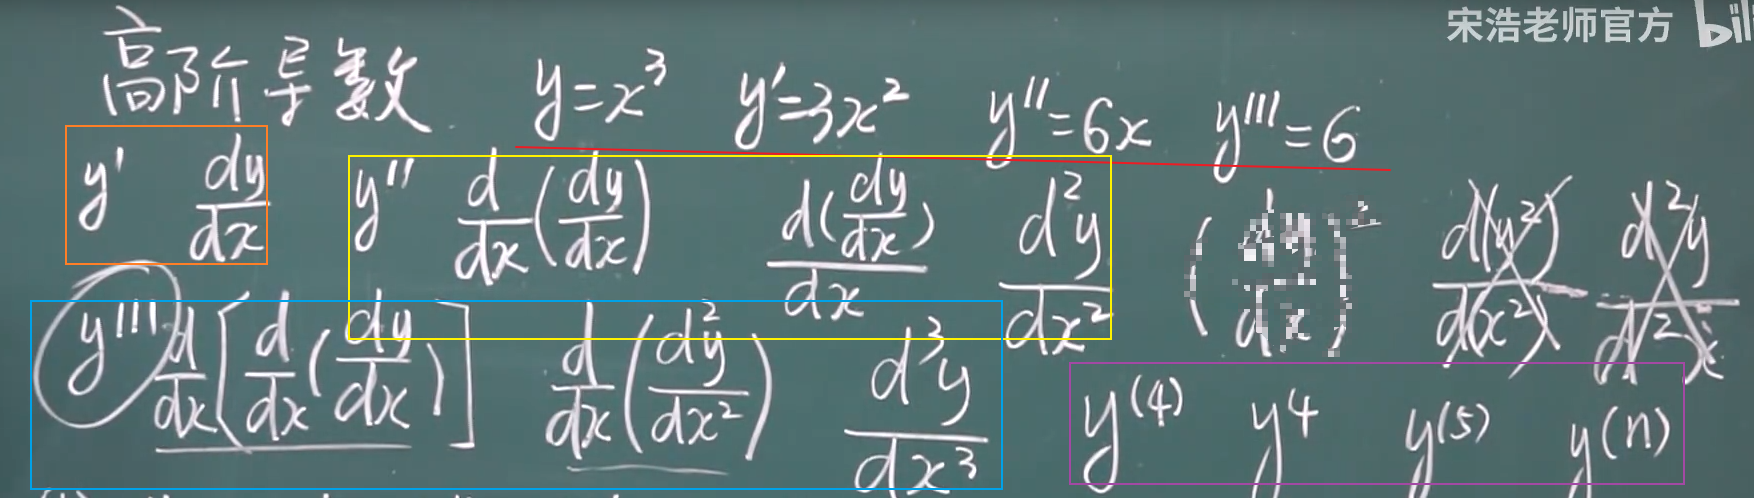 宋浩老师官方 bili
高阶导数 y=x³ y'=3x² y''=6x y'''=6
y' dy/dx y'' d/dx(dy/dx) d(dy/dx)/dx d²y/dx² d(y²)/d(x²) d²y/d²x
y''' d/dx[d/dx(dy/dx)] d/dx(d²y/dx²) d³y/dx³ y⁽⁴⁾ y⁴ y⁽⁵⁾ y⁽ⁿ⁾